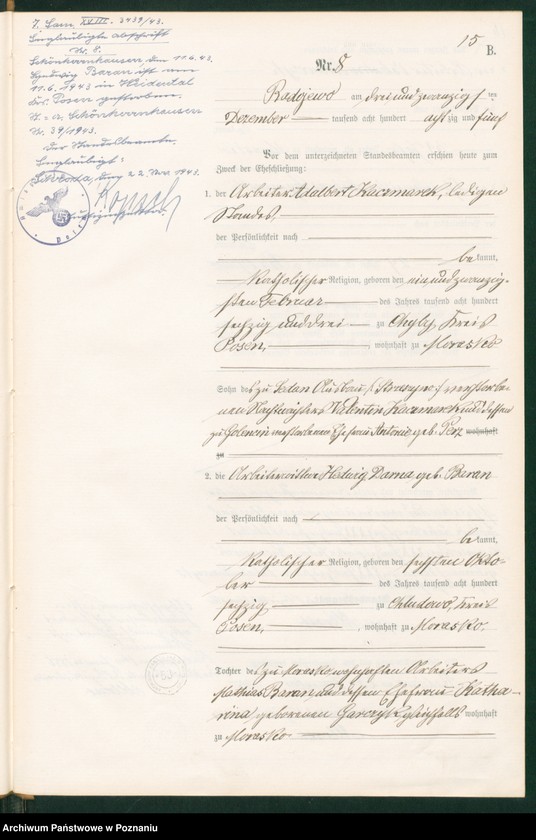 J. Sam XVIII. 2439/43.
Beglaubigte Abschrift
Nr. 8.
Schönherrnhausen, den 11.6.43.
Hedwig Baran ist am
11.6.1943 in
Krs. Posen gestorben.
St.-A. Schönherrnhausen
Nr. 39/1943.
Der Standesbeamte.
Beglaubigt:
den 22. Nov. 1943.
15
B.
Nr. 8
Radojewo am dreiundzwanzigsten
Dezember tausend acht hundert achtzig und fünf
Vor dem unterzeichneten Standesbeamten erschien heute zum
Zweck der Eheschließung:
1. der Arbeiter Adalbert Kaczmarek, ledigen
Standes
der Persönlichkeit nach
bekannt,
katholischer Religion, geboren den einundzwanzig-
sten Februar des Jahres tausend acht hundert
sechzig und drei zu Chyby, Kreis
Posen, wohnhaft zu Morasko
Sohn des zu Sedan Ausbau verstorbe-
nen Nachtwächters Valentin Kaczmarek und dessen
zu Golencin verstorbenen Ehefrau Antonie geb. Perz wohnhaft
zu
2. die Arbeiterwittwe Hedwig Darna geb. Baran
der Persönlichkeit nach
bekannt,
katholischer Religion, geboren den sechsten Okto-
ber des Jahres tausend acht hundert
sechzig zu Chludowo, Kreis
Posen, wohnhaft zu Morasko.
Tochter des zu Morasko wohnhaften Arbeiters
Mathias Baran, und dessen Ehefrau Katha-
rina, geborenen gleichfalls wohnhaft
zu Morasko
Archiwum Państwowe w Poznaniu